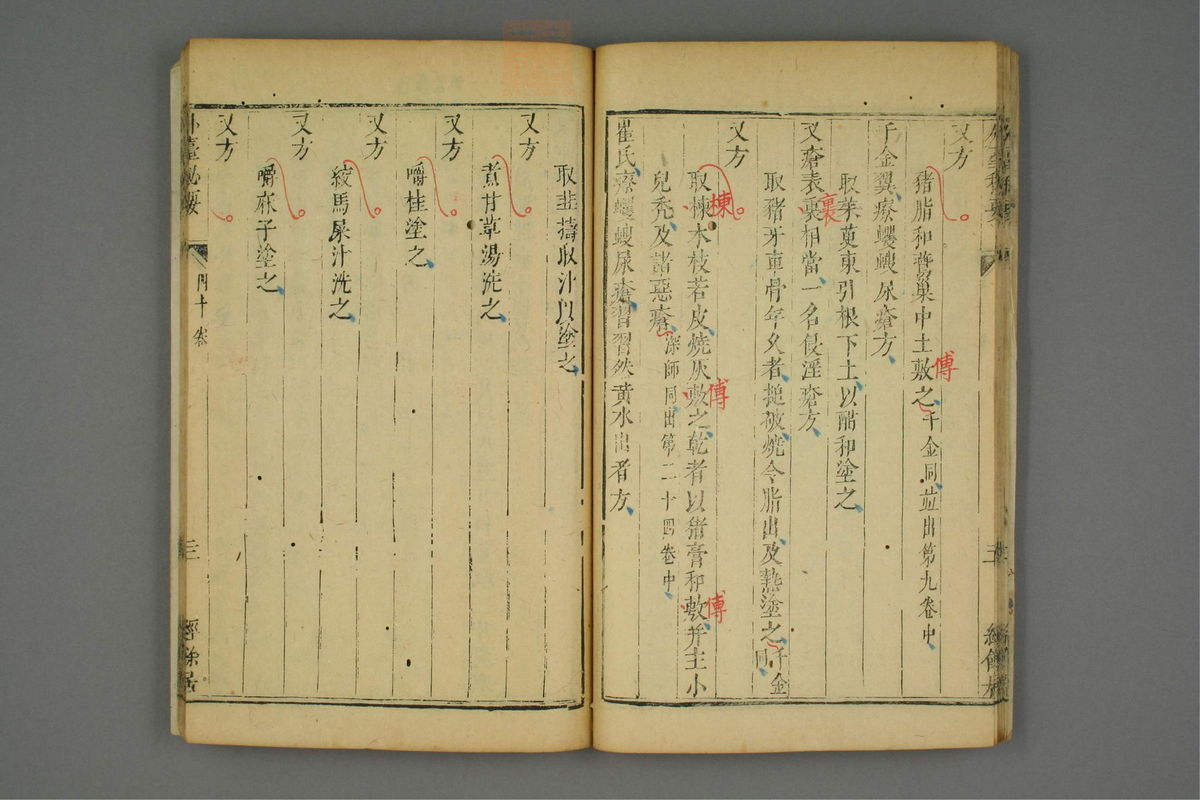 又方
猪脂和鷰巢中土敷之千金同並出第九卷中
傅
千金翼療蠼螋尿瘡方
取茱萸東引根下土以醋和塗之
又瘡表裏相當一名侵淫瘡方
裏
取豬牙車骨年久者搥破燒令脂出及熱塗之千金同
又方
取棟木枝若皮燒灰敷之乾者以猪膏和敷并主小
楝
傅
傅
兒禿及諸惡瘡深師同出第二十四卷中
崔氏療蠼螋尿瘡習習然黄水出者方
取韭擣取汁以塗之
又方
煮甘草湯洗之
又方
嚼桂塗之
又方
絞馬屎汁洗之
又方
嚼麻子塗之
又方
外臺秘要
四十卷
三
經餘居